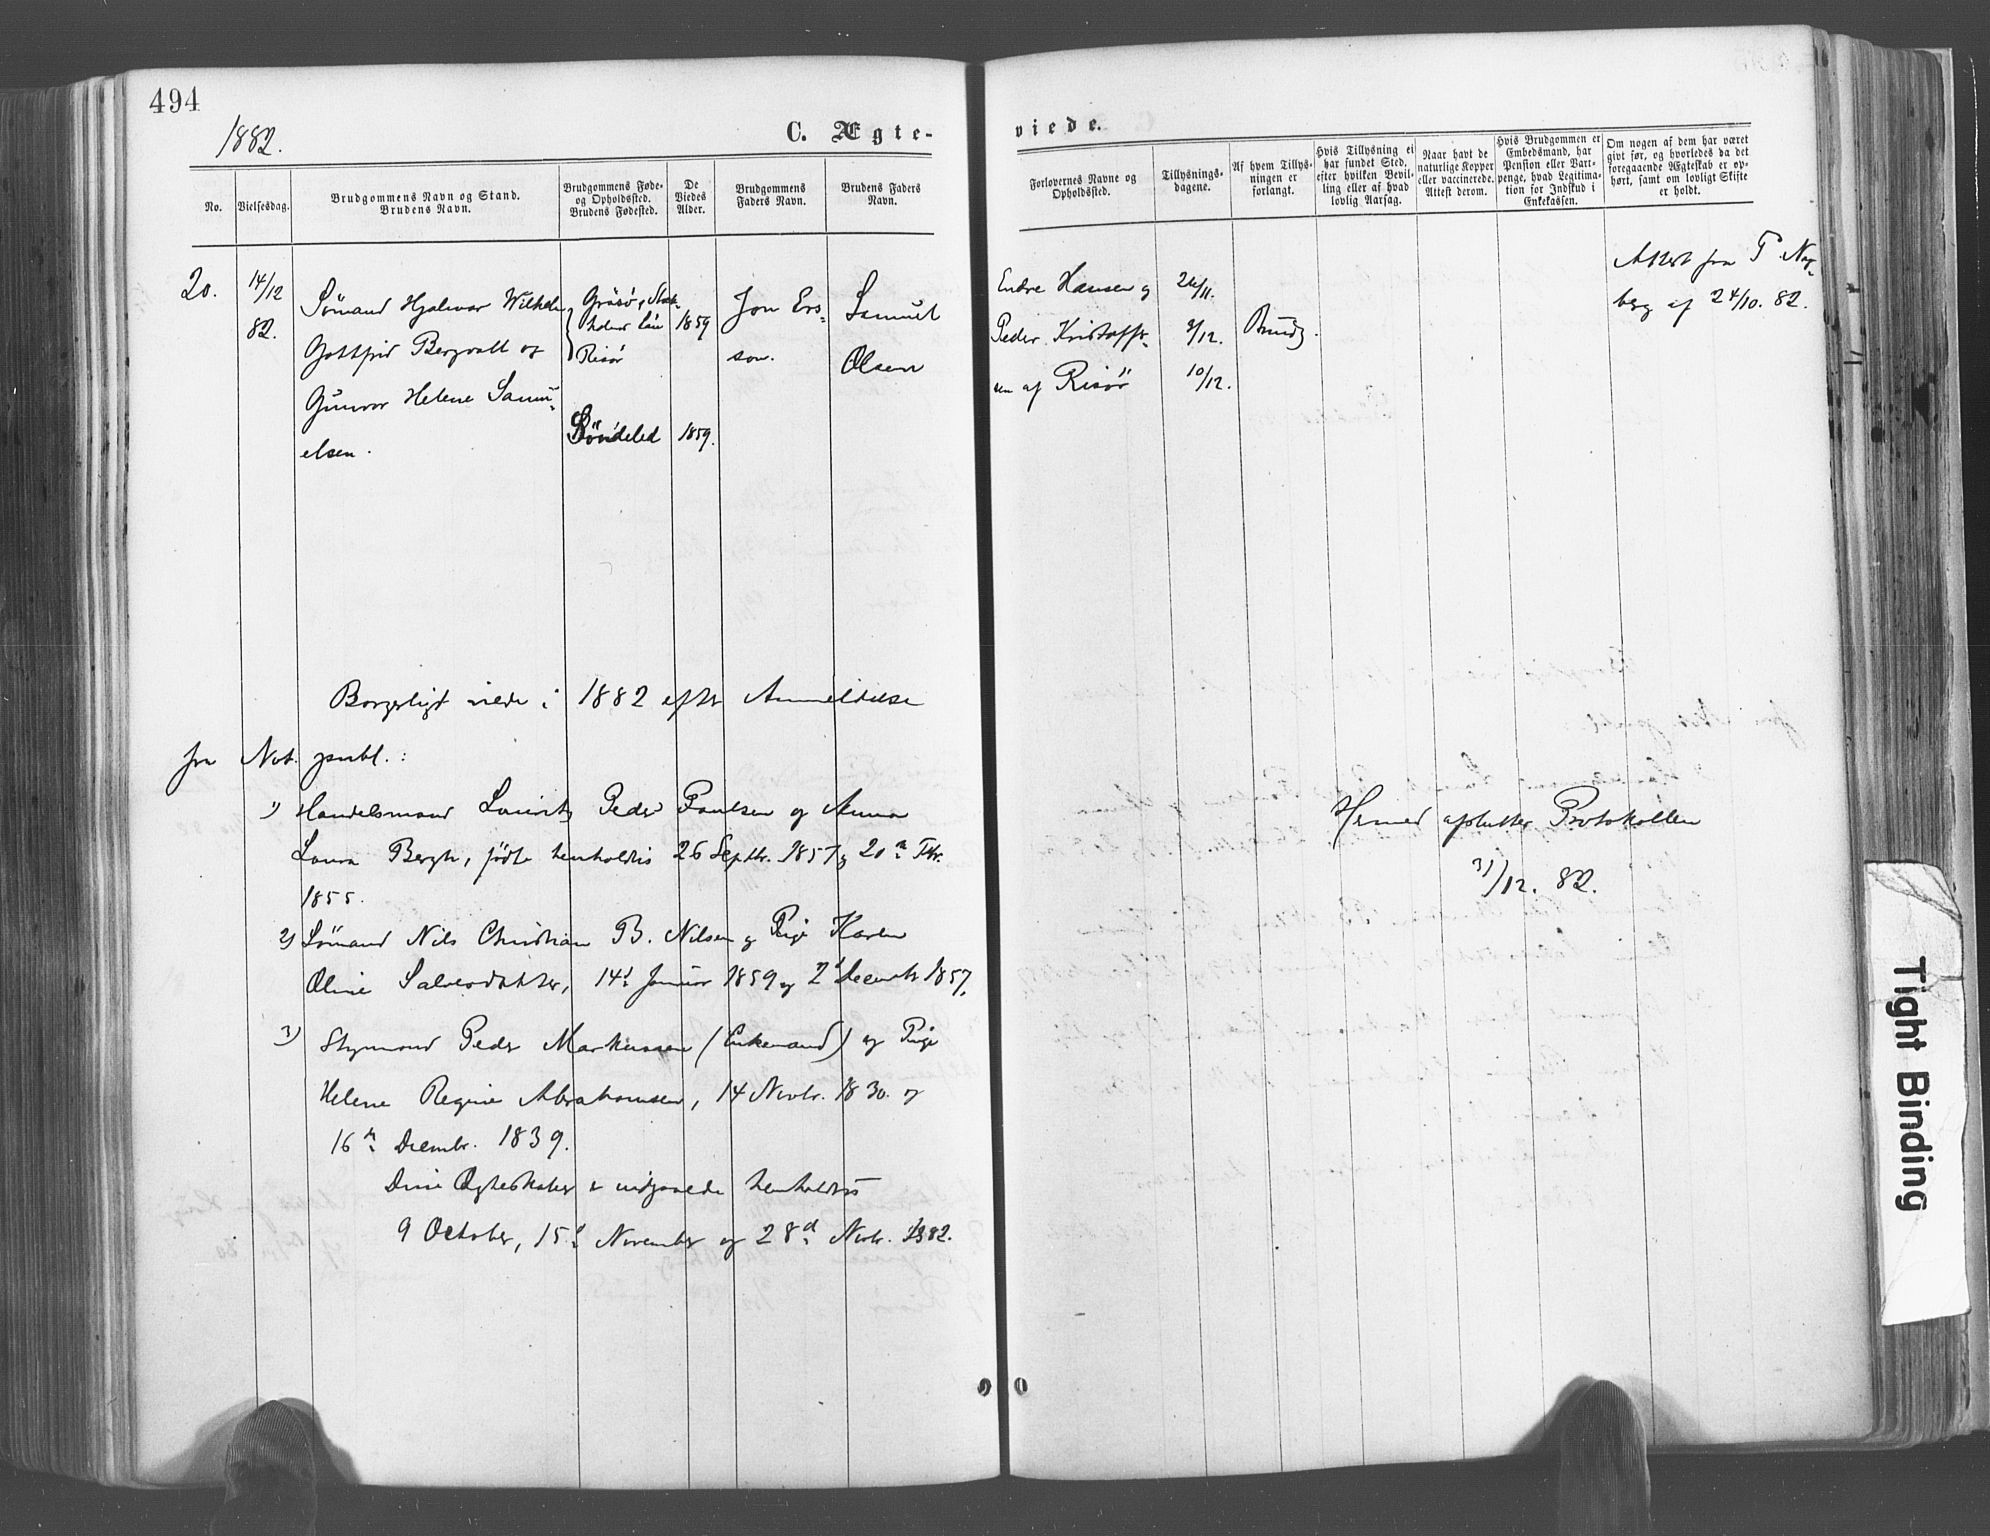 494
1882.
C. Ægte-
viede.
No.
Vielsesdag.
Brudgommens Navn og Stand.
Brudens Navn.
Brudgommens Føde-
og Opholdssted.
Brudens Fødested.
De
Viedes
Alder.
Brudgommens
Faders Navn.
Brudens Faders
Navn.
Forlovernes Navne og
Opholdssted.
Tillysnings-
dagene.
Af hvem Tillys-
ningen er
forlangt.
Hvis Tillysning ei
har fundet Sted,
efter hvilken Bevil-
ling eller af hvad
lovlig Aarsag.
Naar havt de
naturlige Kopper
eller vaccinerede.
Attest derom.
Hvis Brudgommen er
Embedsmand, har
Pension eller Vart-
penge, hvad Legitima-
tion for Indskud i
Enkekassen.
Om nogen af dem har været
givt før, og hvorledes da det
foregaaende Ægteskab er op-
hørt, samt om lovligt Skifte
er holdt.
20.
14/12
82.
Sømand Hjalmar Wilhelm
Gottfrid Bergvall og
Gunvor Helene Samu-
elsen.
Gräsö, Stok-
holms län
Risør
Söndeled
1859
1859.
Jon Ers-
son.
Samuel
Olsen
Endre Hansen og
Peder Kristoffer-
sen af Risör
26/11.
3/12.
10/12.
Brudg.
Attest fra
berg af 24/10. 82.
Borgerligt viede i 1882 efter Anmeldelse
fra Not. publ.:
1) Handelsmand Lauritz Peder Paulsen og Anna
Laura Bergh, fødte henholdvis 26 Septbr. 1857 og 20de Fbr.
1855.
2) Sømand Nils Christian B. Nilsen og Pige Karen
Oline Salvesdatter, 14d Januar 1859 og 2d Decembr 1857.
3) Styrmand Peder Markussen (Enkemand) og Pige
Helene Regine Abrahamsen, 14 Novbr. 1830. og
16de Decembr. 1839.
Disse Ægteskaber er indgaaede henholdvis
9 October, 15d November og 28d Novbr. 1882.
Hermed afslutter Protokollen
31/12. 82.
Tight Binding